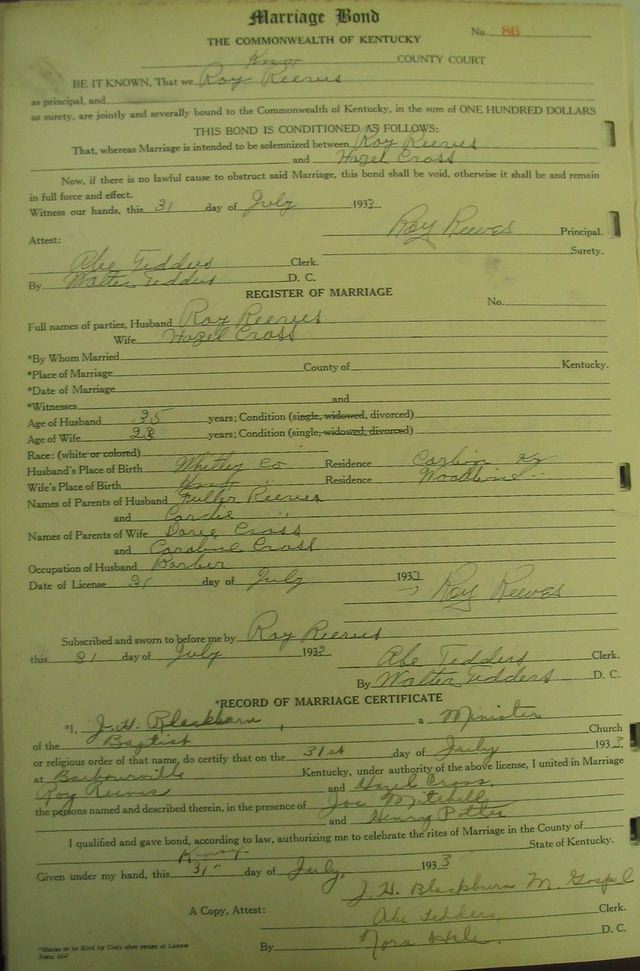 Marriage Bond
No. 86
THE COMMONWEALTH OF KENTUCKY
Knox COUNTY COURT
BE IT KNOWN, That we Roy Reeves
as principal, and
as surety, are jointly and severally bound to the Commonwealth of Kentucky, in the sum of ONE HUNDRED DOLLARS
THIS BOND IS CONDITIONED AS FOLLOWS:
That, whereas Marriage is intended to be solemnized between Roy Reeves
and Hazel Cross
Now, if there is no lawful cause to obstruct said Marriage, this bond shall be void, otherwise it shall be and remain
in full force and effect.
Witness our hands, this 31 day of July 1933
Roy Reeves Principal.
Attest: Surety.
Abe Tedders Clerk.
By Walter Tedders D. C.
REGISTER OF MARRIAGE
No.
Full names of parties, Husband Roy Reeves
Wife Hazel Cross
*By Whom Married
*Place of Marriage County of Kentucky.
*Date of Marriage
*Witnesses and
Age of Husband 35 years; Condition (single, widowed, divorced)
Age of Wife 23 years; Condition (single, widowed, divorced)
Race: (white or colored)
Husband's Place of Birth Whitley Co Residence Corbin Ky
Wife's Place of Birth Residence Woodbine
Names of Parents of Husband Fuller Reeves
and Cordie "
Names of Parents of Wife Cross
and Caroline Cross
Occupation of Husband Barber
Date of License 31 day of July 1933
Roy Reeves
Subscribed and sworn to before me by Roy Reeves
this 31 day of July 1933 Abe Tedders Clerk.
By Walter Tedders D. C.
*RECORD OF MARRIAGE CERTIFICATE
*I, J. H. Blackburn, a Minister
of the Baptist Church
or religious order of that name, do certify that on the 31st day of July 1933
at Barbourville Kentucky, under authority of the above license, I united in Marriage
Roy Reeves and Hazel Cross,
the persons named and described therein, in the presence of Joe Mitchell
and Henry Potter
I qualified and gave bond, according to law, authorizing me to celebrate the rites of Marriage in the County of
Knox State of Kentucky.
Given under my hand, this 31" day of July, 1933
J. H. Blackburn M. Gospel
A Copy, Attest: Abe Tedders, Clerk.
By Nora Hale. D. C.
*Blanks to be filled by Clerk after return of License